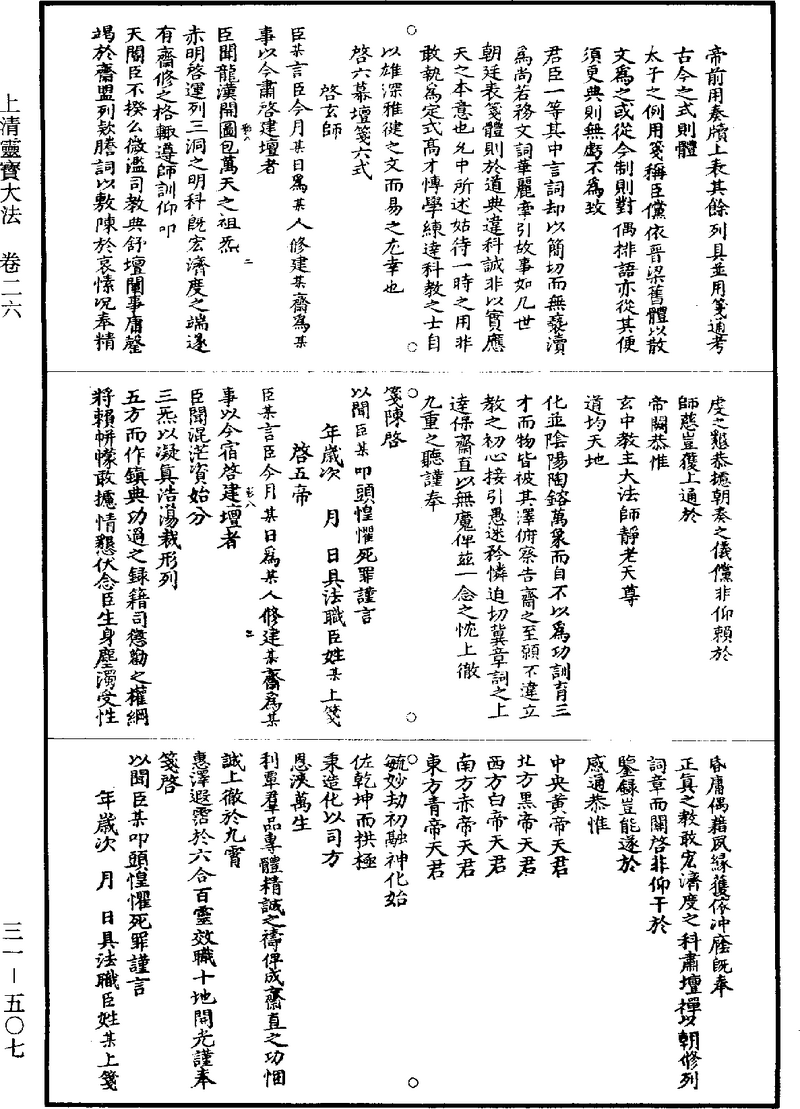 上清靈寶大法　卷二六
三一－五〇七
帝前用奏牘上表其餘列具並用箋適考
古今之式則體
太子之例用箋稱臣儻依晉梁舊體以散
文爲之或從今制則對偶排語亦從其便
須更典則無虧不爲玫
君臣一等其中言詞却以簡切而無褻瀆
爲尚若務文詞華麗牽引故事如凡世
朝廷表箋體則於道典違科誠非以實應
天之本意也允中所述姑待一時之用非
敢執爲定式高才博學練達科教之士自
以雄深雅健之文而易之尤幸也
啓六幕壇箋六式
啓玄師
臣某言臣今月某日爲某人修建某齋爲某
事以今肅啓建壇者
臣聞龍漢開圖包萬天之祖炁
赤明啓運列三洞之明科既宏濟度之端遂
有齋修之格輙遵師訓仰叩
天閽臣不揆么微濫司教典舒壇闡事庸罄
竭於齋盟列欵謄詞以敷陳於哀愫况奉精
虔之懇恭摅朝奏之儀儻非仰賴於
師慈豈獲上通於
帝闕恭惟
玄中教主大法師靜老天尊
道均天地
化並陰陽陶鎔萬象而自不以爲功訓育三
才而物皆被其澤俯察告齋之至願不違立
教之初心接引愚迷矜憐迫切冀章詞之上
達保齋直以無魔俾茲一念之忱上徹
九重之聽謹奉
箋陳啓
以聞臣某叩頭惶懼死罪謹言
年歲次　月　日具法職臣姓某上箋
啓五帝
臣某言臣今月某日爲某人修建某齋爲某
事以今宿啓建壇者
臣聞混茫資始分
三炁以凝真浩蕩裁形列
五方而作鎮典功過之録籍司懲勸之權綱
將賴帡幪敢攄情懇伏念臣生身塵濁受性
昏庸偶藉夙緣獲依冲廕既奉
正真之教敢宏濟度之科肅壇墠以朝修列
詞章而關啓非仰干於
鑒録豈能遂於
感通恭惟
中央黄帝天君
北方黑帝天君
西方白帝天君
南方赤帝天君
東方青帝天君
毓妙劫初融神化始
佐乾坤而拱極
秉造化以司方
恩浹萬生
利覃羣品專體精誠之禱俾成齋直之功悃
誠上徹於九霄
惠澤遐霑於六合百靈效職十地開光謹奉
箋啓
以聞臣某叩頭惶懼死罪謹言
年歲次　月　日具法職臣姓某上箋